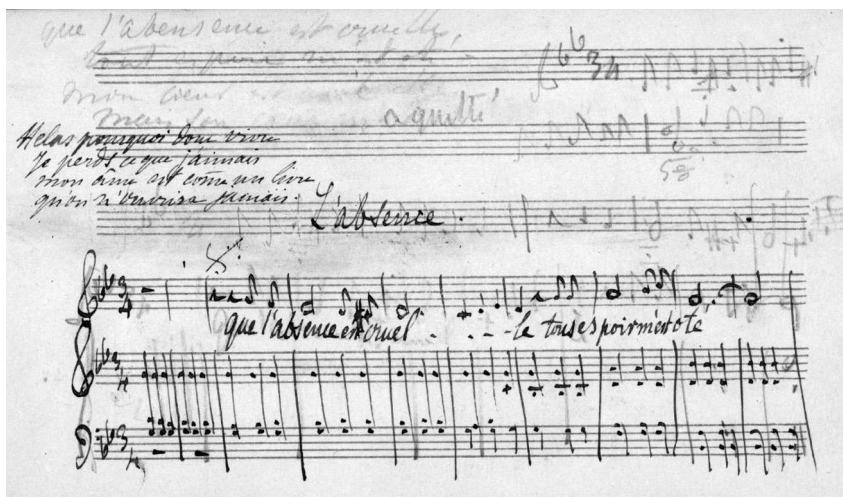 que l'abensence est cruelle,
tout espoir m'est oté
mon cœur est
a quitté
Helas pourquoi donc vivre
Je perds ce que j'aimais
mon âme est come un livre
qu'on n'ouvrira jamais.
L'absence.
que l'absence est cruel - - - le tous espoir m'est oté